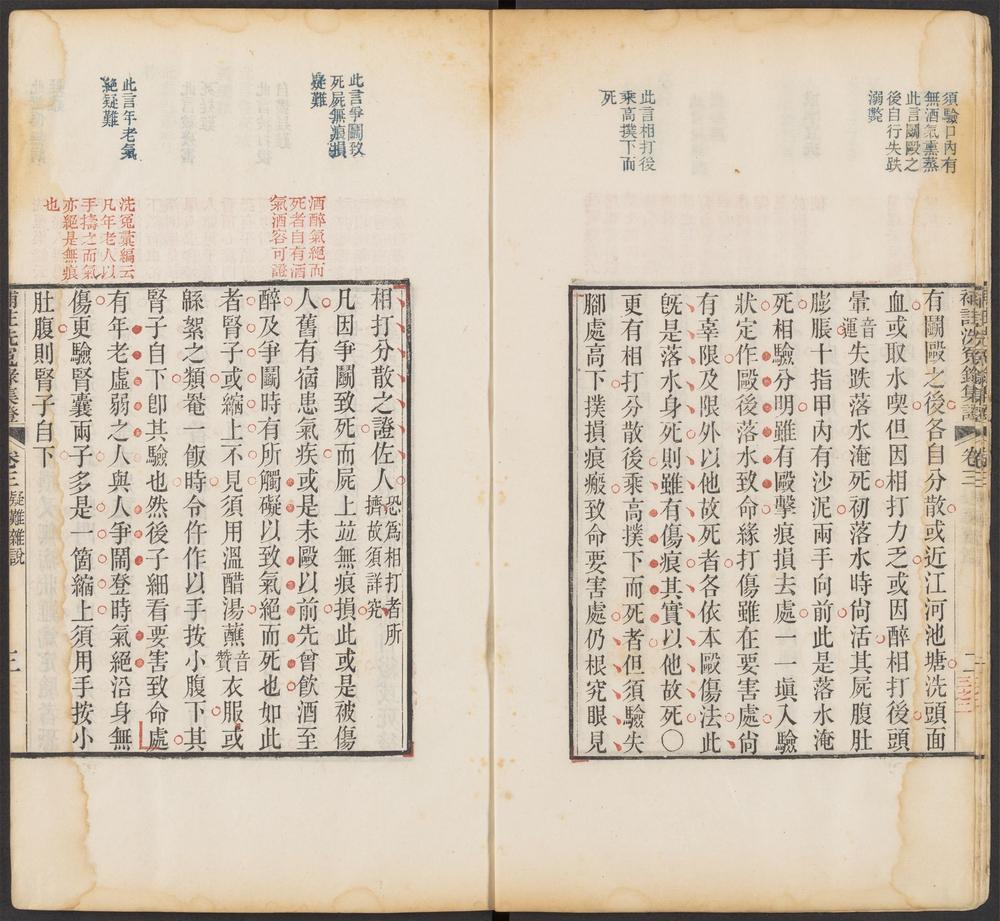 須驗口內有
無酒氣熏蒸
此言鬭毆之
後自行失跌
溺斃
此言相打後
乘高撲下而
死
有鬭毆之後各自分散或近江河池塘洗頭面
血或取水喫但因相打力乏或因醉相打後頭
暈音運失跌落水淹死初落水時尙活其屍腹肚
膨脹十指甲內有沙泥兩手向前此是落水淹
死相驗分明雖有毆擊痕損去處一一塡入驗
狀定作毆後落水致命緣打傷雖在要害處尙
有辜限及限外以他故死者各依本毆傷法此
旣是落水身死則雖有傷痕其實以他故死〇
更有相打分散後乘高撲下而死者但須驗失
腳處高下撲損痕瘢致命要害處仍根究眼見
此言爭鬭致
死屍無痕損
疑難
此言年老氣
絕疑難
酒醉氣絕而
死者自有酒
氣酒容可證
洗冤彙編云
凡年老人以
手擣之而氣
亦絕是無痕
也
相打分散之證佐人恐爲相打者所擠故須詳究
凡因爭鬭致死而屍上竝無痕損此或是被傷
人舊有宿患氣疾或是未毆以前先曾飮酒至
醉及爭鬭時有所觸礙以致氣絕而死也如此
者腎子或縮上不見須用溫醋湯蘸音贊衣服或
緜絮之類罨一飯時令仵作以手按小腹下其
腎子自下卽其驗也然後子細看要害致命處
有年老虛弱之人與人爭鬭登時氣絕沿身無
傷更驗腎囊兩子多是一箇縮上須用手按小
肚腹則腎子自下
補註洗冤錄集證 卷三 疑難雜說 三